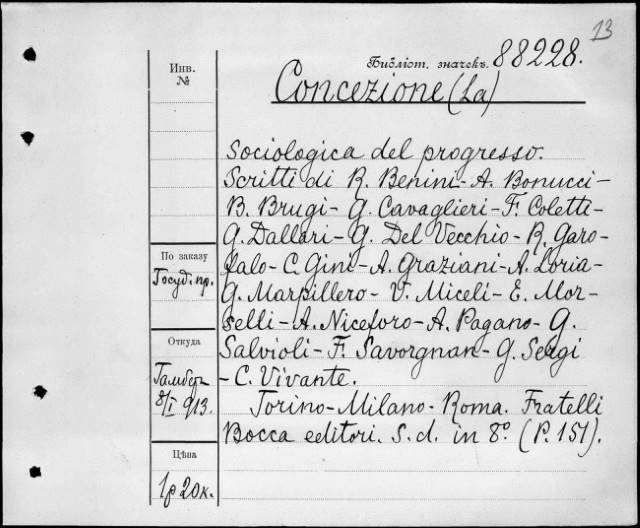 13
Инв.
№
Библіот. значекъ. 88228.
Concezione (La)
sociologica del progresso.
Scritti di R. Benini - A. Bonucci -
B. Brugi - G. Cavaglieri - F. Coletti -
G. Dallari - G. Del Vecchio - R. Garo-
falo - C. Gini - A. Graziani - A. Loria -
G. Marpillero - V. Miceli - E. Mor-
selli - A. Niceforo - A. Pagano - G.
Salvioli - F. Savorgnan - G. Sergi
- C. Vivante.
Torino - Milano - Roma. Fratelli
Bocca editori. S. d. in 8º. (P. 151).
По заказу
Госуд. пр.
Откуда
Гамбер
8/I 913.
Цѣна
1р 20к.